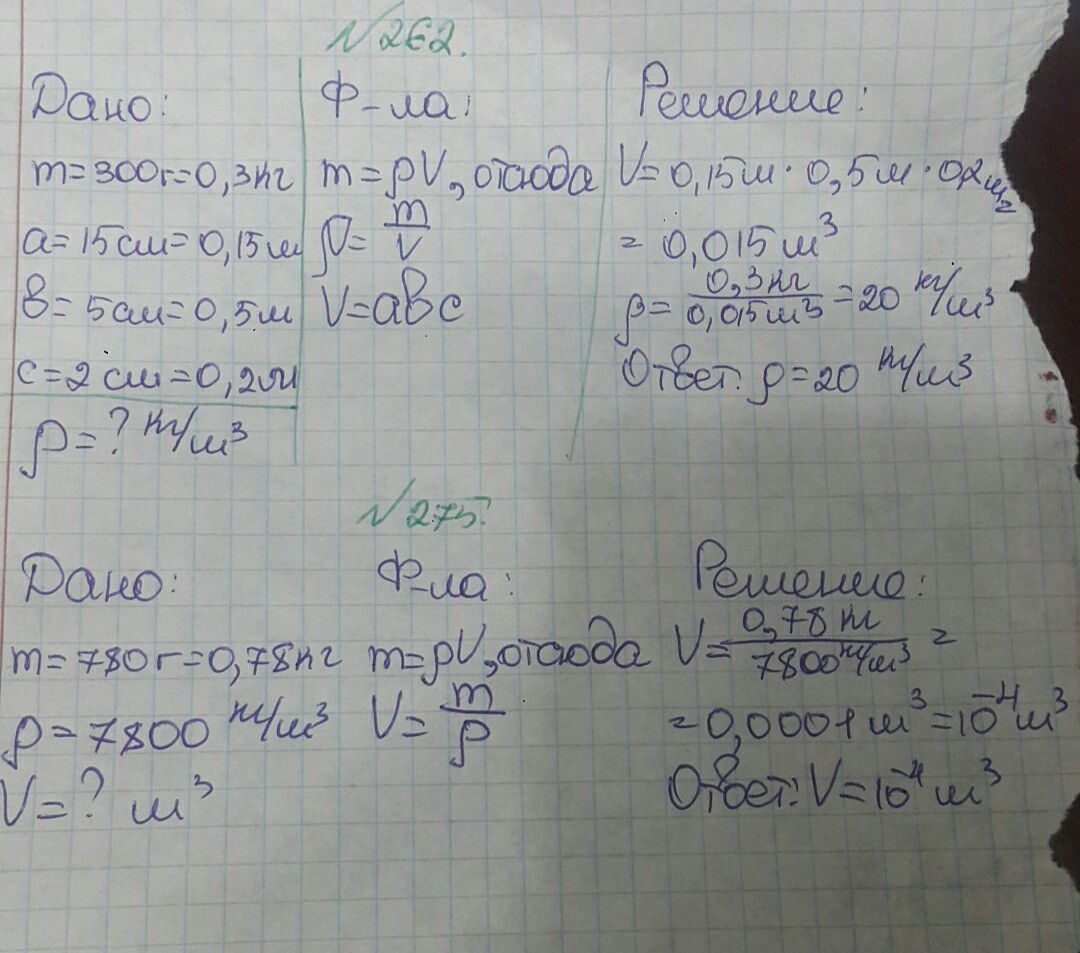 №262.
Дано:
m=300г=0,3кг
a=15см=0,15м
в=5см=0,5м
c=2см=0,2м
ρ=? кг/м³
Ф-ла:
m=ρV, отсюда
ρ=m/V
V=aвc
Решение:
V=0,15м·0,5м·0,2м=
=0,015м³
ρ=0,3кг/0,015м³=20 кг/м³
Ответ: ρ=20 кг/м³
№275.
Дано:
m=780г=0,78кг
ρ=7800 кг/м³
V=? м³
Ф-ла:
m=ρV, отсюда
V=m/ρ
Решение:
V=0,78 кг/7800 кг/м³=
=0,0001м³=10⁻⁴м³
Ответ: V=10⁻⁴м³